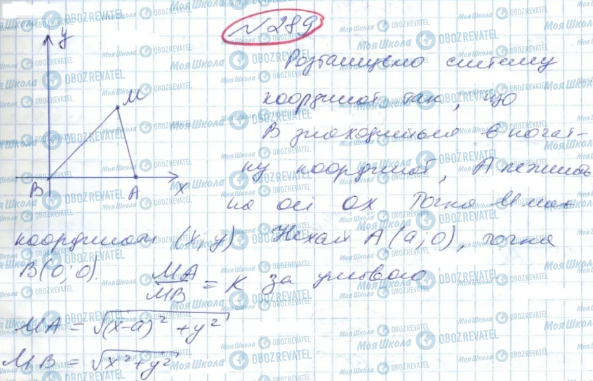 № 289
y
M
B
A
x
Розташуємо систему
координат так, що
B знаходиться в почат-
ку координат, A лежить
на осі ox Точка M має
координати (x, y) Нехай A(a, 0), точка
B(0, 0). MA/MB = K за умовою
MA = √((x-a)² + y²)
MB = √(x² + y²)
Моя Школа
OBOZREVATEL